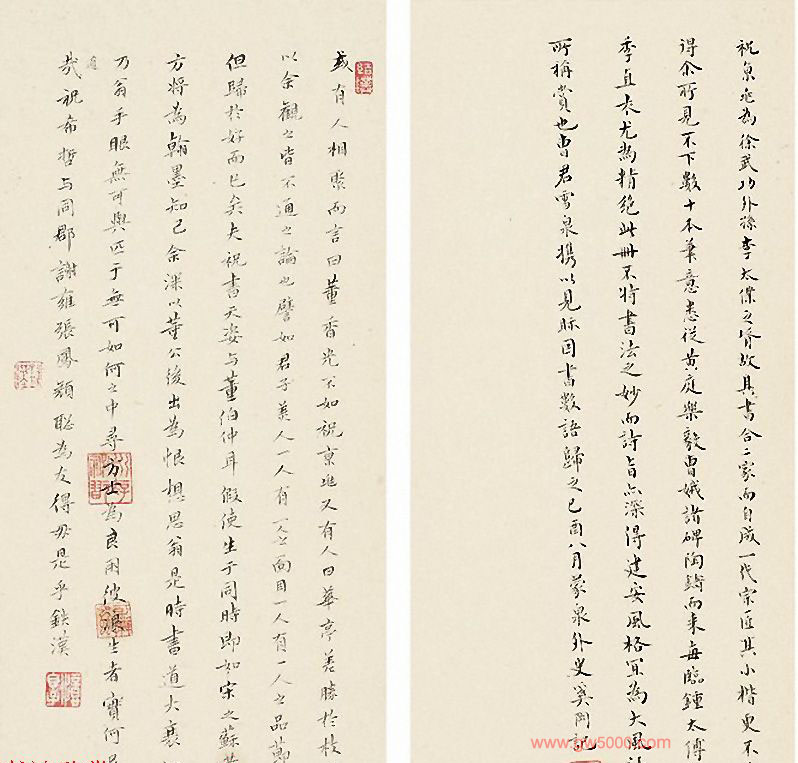 祝京兆為徐武功外孫李太僕之壻故其書合二家而自成一代宗匠其小楷更不
得余所見不下數十本筆意悉從黃庭樂毅曹娥諸碑陶鑄而來每臨鍾太傅
季直表尤為精絕此冊不特書法之妙而詩旨亦深得建安風格宜為大風
所稱賞也曹君雪泉攜以見眎因書數語歸之己酉八月蒙泉外史奚岡記
或有人相聚而言曰董香光不如祝京兆又有人曰華亭差勝於枝
以余觀之皆不通之論也譬如君子美人一人有一人之面目一人有一人之品
但歸於好而已矣夫祝書天姿与董伯仲耳假使生于同時即如宋之蘇黃
方將為翰墨知己余深以董公後出為恨想思翁是時書道大襄
乃翁手眼無可與匹于無可如何之中尋方士為良朋彼張生者實何
哉祝希哲与同郡謝雍張鳳顏聰為友得毋是乎鐵漢
www.bw5000.com